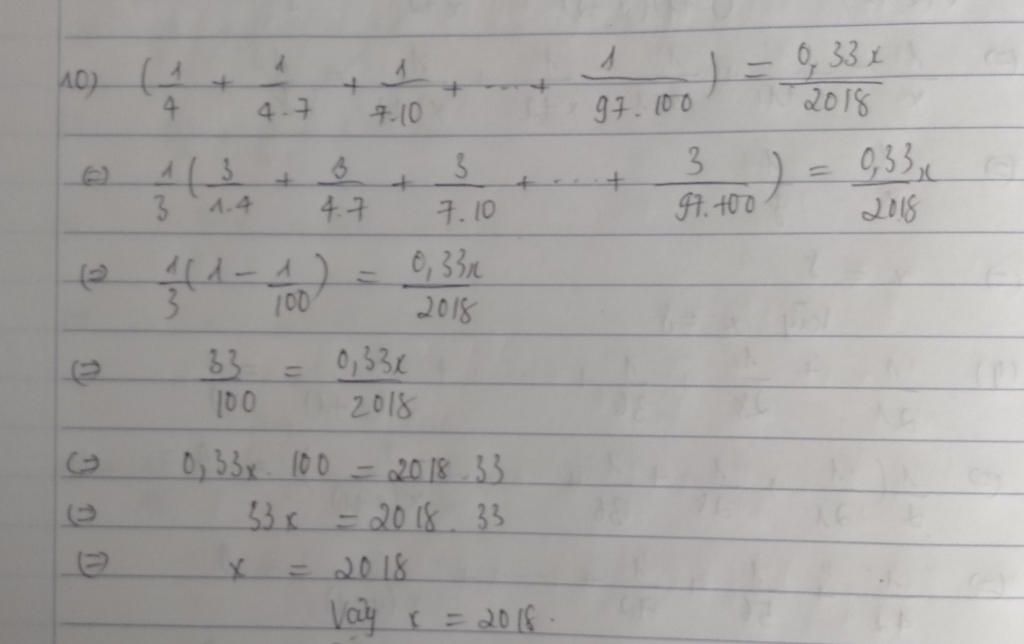 10) (1/4 + 1/4.7 + 1/7.10 + ... + 1/97.100) = 0,33x/2018
(=) 1/3(3/1.4 + 3/4.7 + 3/7.10 + ... + 3/97.100) = 0,33x/2018
(=) 1/3(1 - 1/100) = 0,33x/2018
(=) 33/100 = 0,33x/2018
(=) 0,33x. 100 = 2018.33
(=) 33x = 2018.33
(=) x = 2018
Vậy x = 2018.